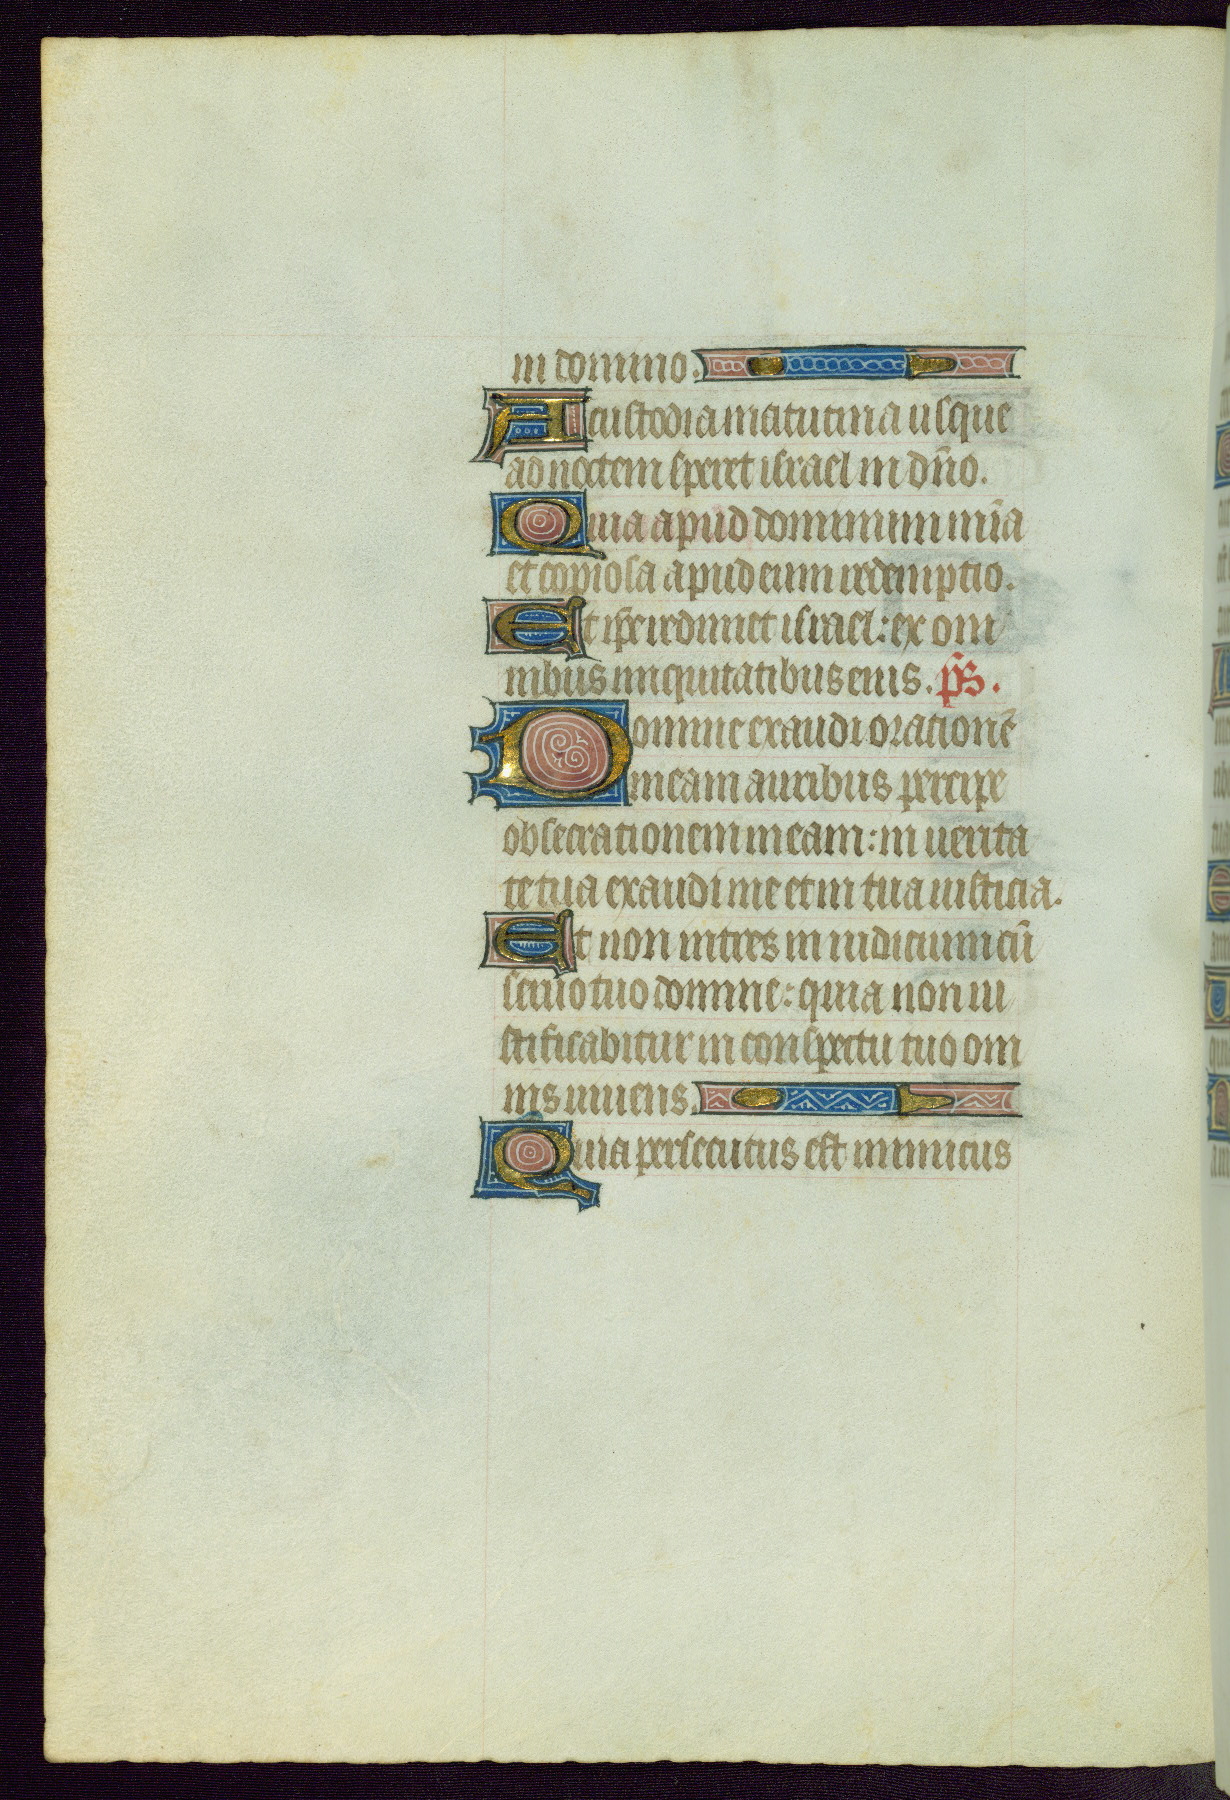 in domino.
A custodia matutina usque
ad noctem speret israel in dño.
Quia apud dominum mĩa
et copiosa apud eum redemptio.
Et ip̃e redimet israel: ex om
nibus iniquitatibus eius. p̃s.
Domine exaudi orationẽ
meam auribus percipe
obsecrationem meam: in uerita
te tua exaudi me et in tua iusticia.
Et non intres in iudicium cũ
seruo tuo domine: quia non iu
stificabitur in conspectu tuo om
nis uiuens.
Quia persecutus est inimicus